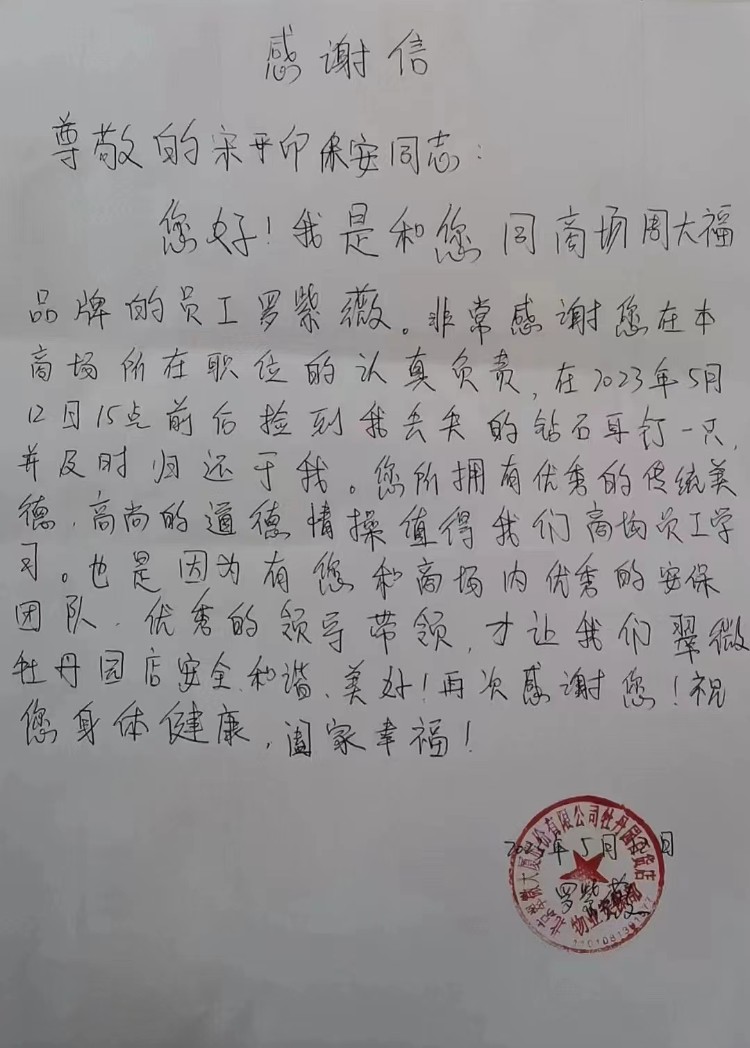 感谢信
尊敬的宋平印保安同志:
您好!我是和您同商场周大福
品牌的员工罗紫薇。非常感谢您在本
商场所在职位的认真负责,在2023年5月
12日15点前后捡到我丢失的钻石耳钉一只,
并及时归还于我。您所拥有优秀的传统美
德、高尚的道德情操值得我们商场员工学
习。也是因为有您和商场内优秀的安保
团队、优秀的领导带领,才让我们翠微
牡丹园店安全、和谐、美好!再次感谢您!祝
您身体健康,阖家幸福!
年5月 日
罗紫薇
北京翠微大厦股份有限公司牡丹园百货店